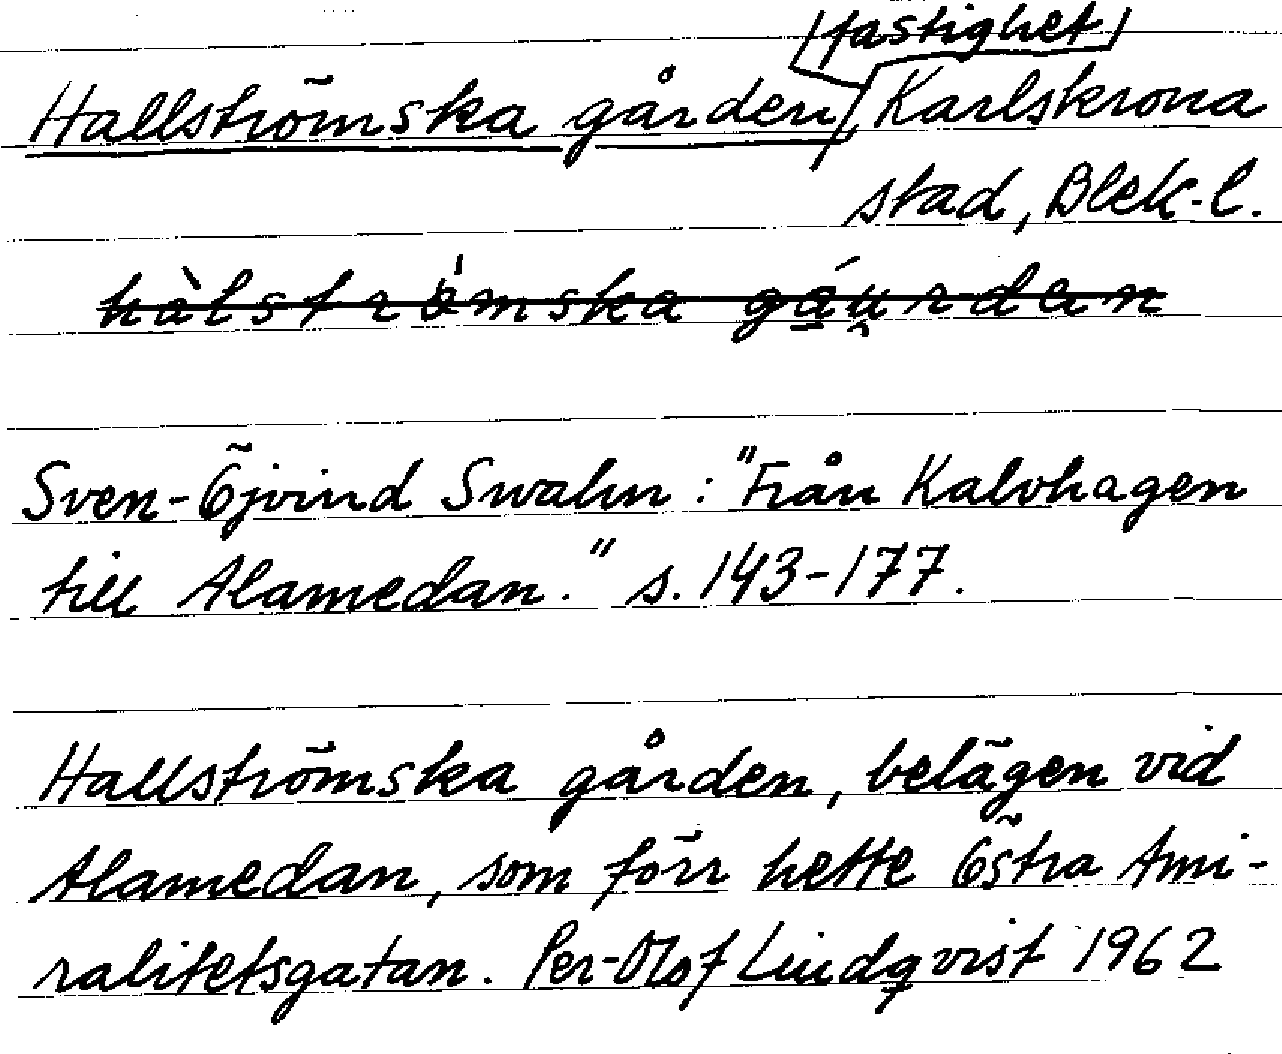 fastighet
Hallströmska gården, Karlskrona
stad, Blek. l.
hàlströ́mska gáu̯rdan
Sven-Öjvind Swahn: "Från Kalvhagen
till Alamedan." s. 143-177.
Hallströmska gården, belägen vid
Alamedan, som förr hette Östra Ami-
ralitetsgatan. Per-Olof Lindqvist 1962